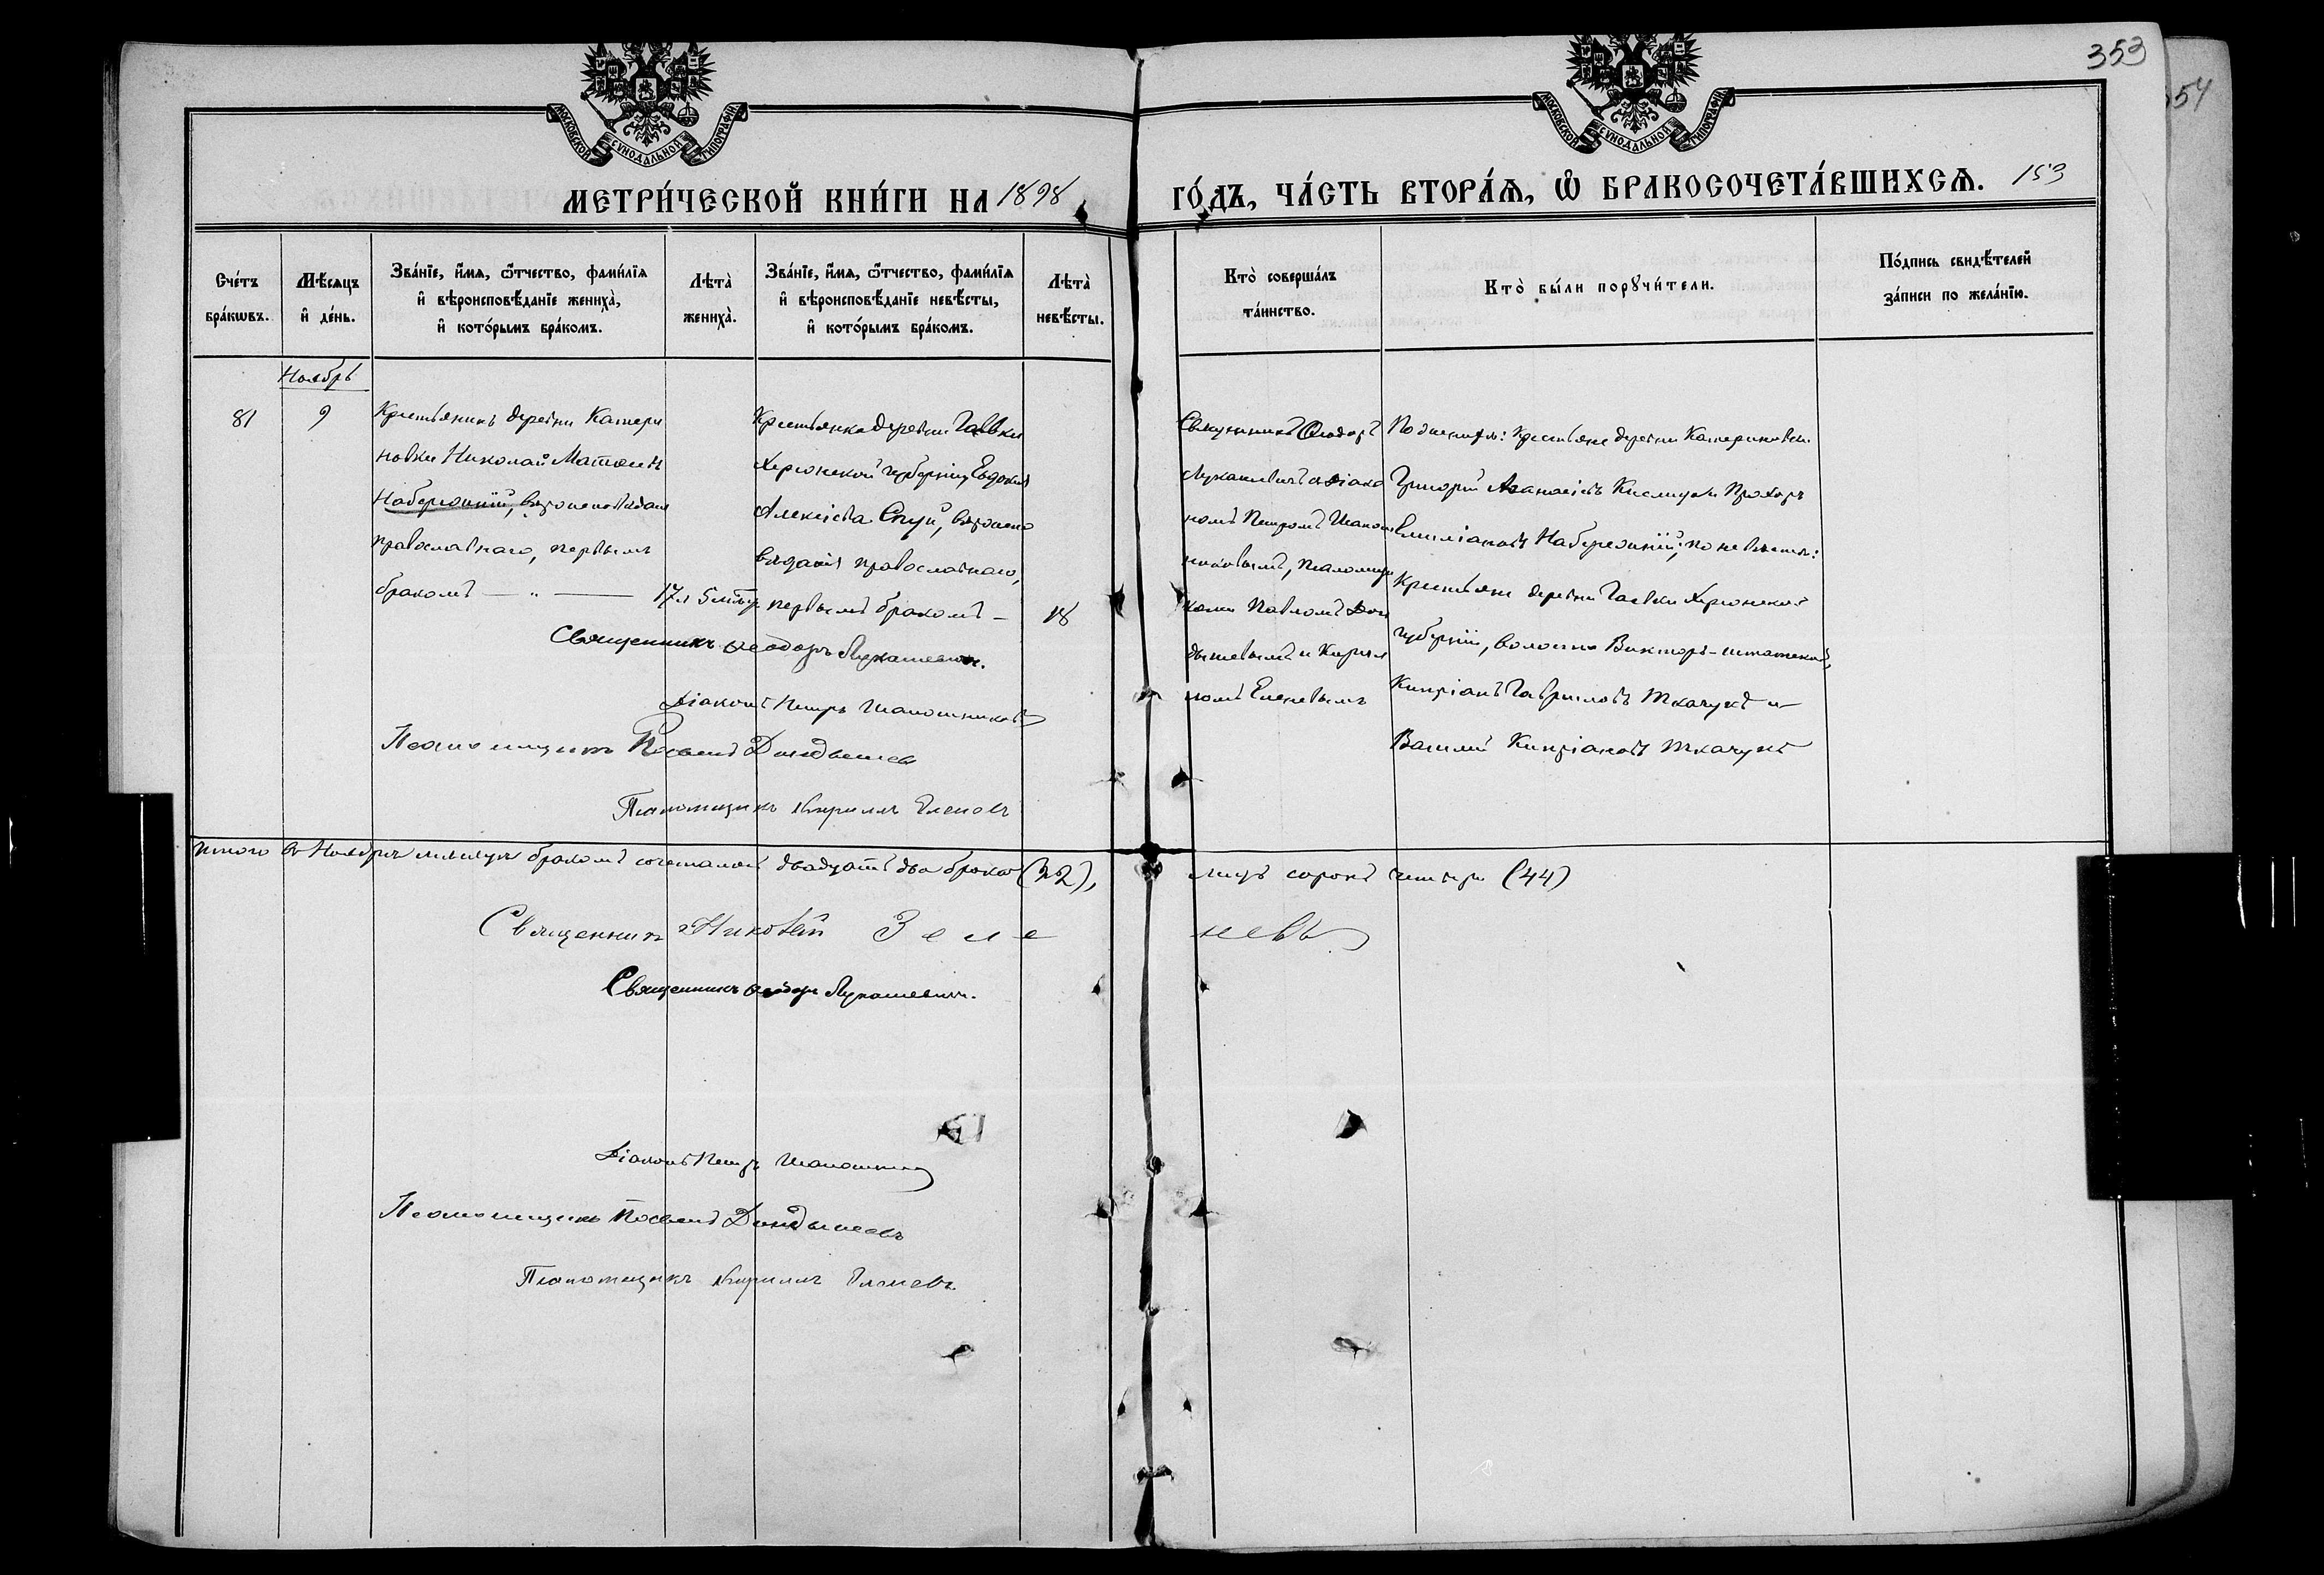 353
54
МОСКОВСКОЙ СѴНОДАЛЬНОЙ ТИПОГРАФІИ
МОСКОВСКОЙ СѴНОДАЛЬНОЙ ТИПОГРАФІИ
МЕТРИ́ЧЕСКОЙ КНИ́ГИ НА 1898 ГО́ДЪ, ЧА́СТЬ ВТОРА́Я, Ѽ БРАКОСОЧЕТА́ВШИХСѦ. 153
Сче́тъ
бра́кѡвъ.
Мѣ́сяцъ
и҆ де́нь.
Зва́нїе, и҆́мя, ѻ҆́тчество, фами́лїя
и҆ вѣроисповѣ́данїе жениха̀,
и҆ кото́рымъ бра́комъ.
Лѣта̀
жениха̀.
Зва́нїе, и҆́мя, ѻ҆́тчество, фами́лїя
и҆ вѣроисповѣ́данїе невѣ́сты,
и҆ кото́рымъ бра́комъ.
Лѣта̀
невѣ́сты.
Кто̀ соверша́лъ
та́инство.
Кто̀ бы́ли порꙋчи́тели.
По́дпись свидѣ́телей
за́писи по жела́нїю.
Ноябрь
81
9
Крестьянинъ деревни Катери
новки Николай Матѳеевъ
Набережній, вѣроисповѣданія
православнаго, первымъ
бракомъ — " —
17 л 5 мѣс.
Крестьянка деревни Гаевки
Херсонской губерніи, Евдокія
Алексѣева Спуй, вѣроиспо
вѣданія православнаго,
первымъ бракомъ —
18
Священникъ Ѳеодоръ
Лукашевичъ съ діако
номъ Петромъ Шапош
никовымъ, псаломщи
ками Павломъ Дон
дышевымъ и Кирил
ломъ Еленевымъ
По женихѣ: крестьяне деревни Катериновки
Григорій Аѳанасіевъ Кислица и Прохоръ
Емиліановъ Набережній; по невѣстѣ:
Крестьяне деревни Гаевки Херсонской
губерніи, волости Викторъ-штатской,
Кипріанъ Гавриловъ Ткачукъ и
Василій Кипріановъ Ткачукъ
Священникъ Ѳеодоръ Лукашевичъ.
Діаконъ Петръ Шапошниковъ
Псаломщикъ Павелъ Дондышевъ
Псаломщикъ Кириллъ Еленевъ
Итого въ Ноябрѣ мѣсяцѣ бракомъ сочеталось двадцать два брака (22), лицъ сорокъ четыре (44)
Священникъ Зеленевъ
Священникъ Ѳеодоръ Лукашевичъ.
Діаконъ Петръ Шапошниковъ
Псаломщикъ Павелъ Дондышевъ
Псаломщикъ Кириллъ Еленевъ.